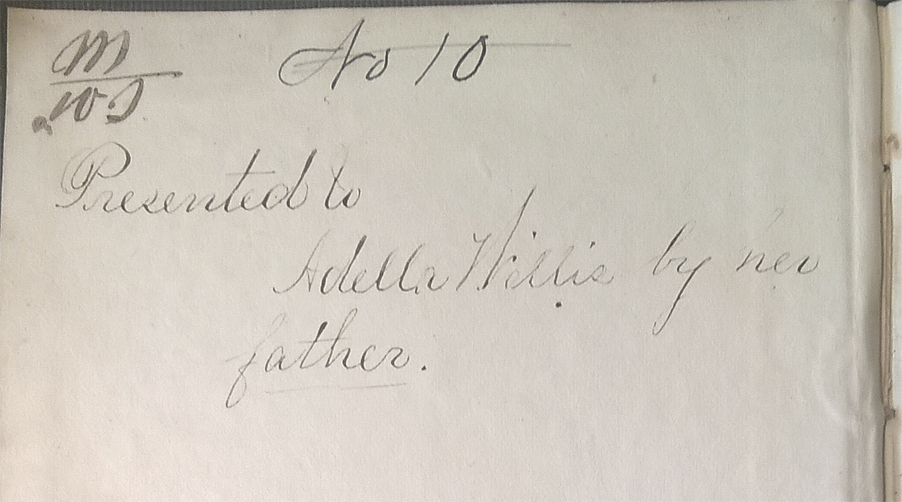 M No 10
Presented to
Adella Willis by her
father.